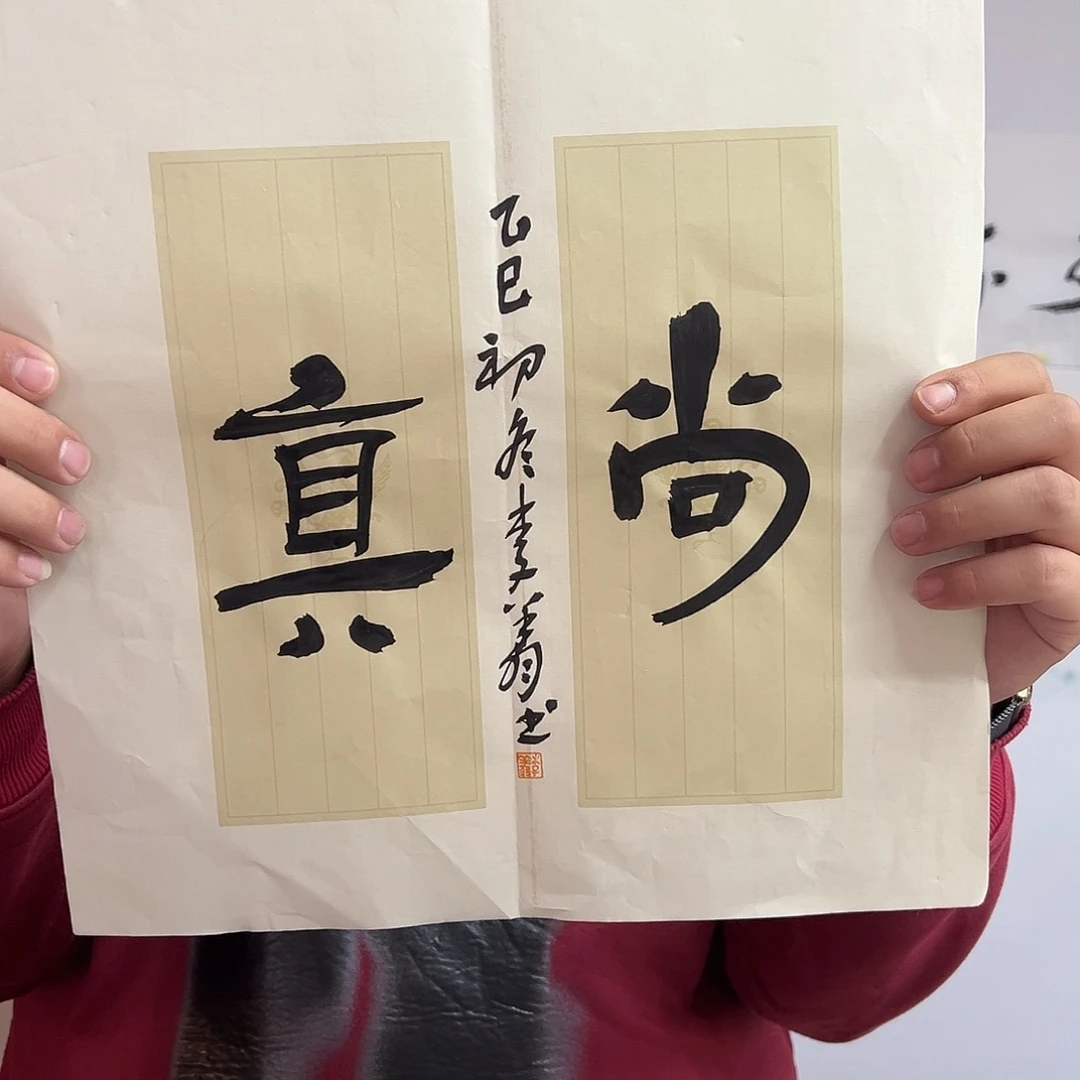 尚
真
乙巳初冬李
书